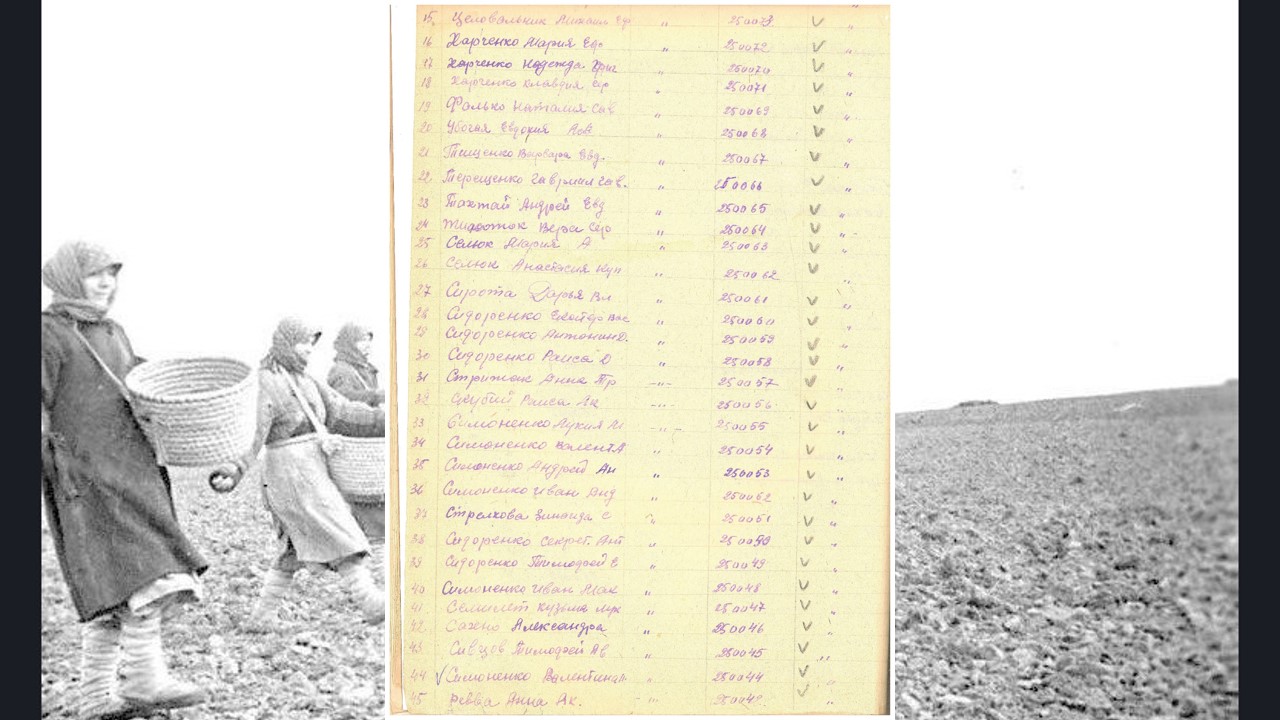 15. Целовальник Михаил Еф " 250073 V "
16 Харченко Мария Едо " 250072 V "
17 Харченко Надежда " 250070 V "
18 Харченко Клавдия " 250071 V "
19 Фалько Наталия Сав " 250069 V "
20 Убогая Евдокия " 250068 V "
21 Тищенко Варвара Евд. " 250067 V "
22 Терещенко Гаврил Гав. " 250066 V "
23 Тахтай Андрей Евд " 250065 V "
24 Вера " 250064 V "
25 Селюк Мария А " 250063 V "
26 Селюк Анастасия Куп " 250062 V "
27 Сирота Дарья Вл " 250061 V "
28 Сидоренко " 250060 V "
29 Сидоренко Антонин Д. " 250059 V "
30 Сидоренко Раиса Д " 250058 V "
31 Стрижак Анна Тр -"- 250057 V "
32 Раиса -"- 250056 V "
33 Симоненко Лукия -"- 250055 V "
34 Симоненко Валент А " 250054 V "
35 Симоненко Андрей Ан " 250053 V "
36 Симоненко Иван Анд " 250052 V "
37 Стрелкова Зинаида С " 250051 V "
38 Сидоренко Секрет. Ант " 250050 V "
39 Сидоренко Тимофей Е " 250049 V "
40 Симоненко Иван Мак " 250048 V "
41 Семилет Кузьма " 250047 V "
42 Сахно Александра " 250046 V "
43 Сивцов Тимофей Ав " 250045 V "
44 V Симоненко Валентина " 250044 V "
45 Ревва Анна Ак. " V "